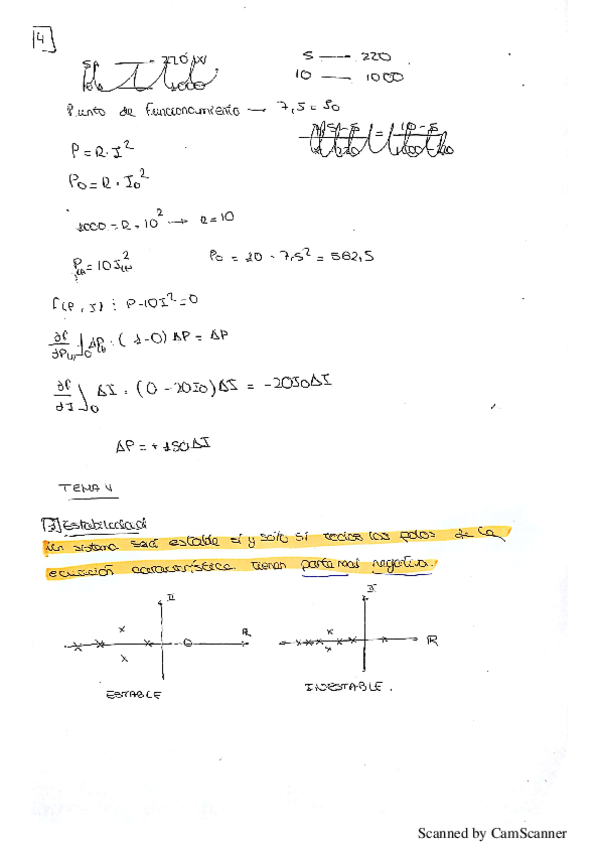 4
5 — 220
10 — 1000
Punto de funcionamiento → 7,5 = I0
P = R·I²
P0 = R·I0²
1000 = R·10² → R=10
P(t) = 10 I(t)²
P0 = 10 · 7,5² = 562,5
f(P, I) : P-10I²=0
∂f/∂P(t)]0 ΔP(t) = (1-0) ΔP = ΔP
∂f/∂I]0 ΔI = (0 - 20I0) ΔI = -20I0ΔI
ΔP = + 150ΔI
TEMA V
Estabilidad
Un sistema será estable si y solo si todos los polos de la
ecuación característica tienen parte real negativa.
II
R
ESTABLE
R
INESTABLE.
Scanned by CamScanner